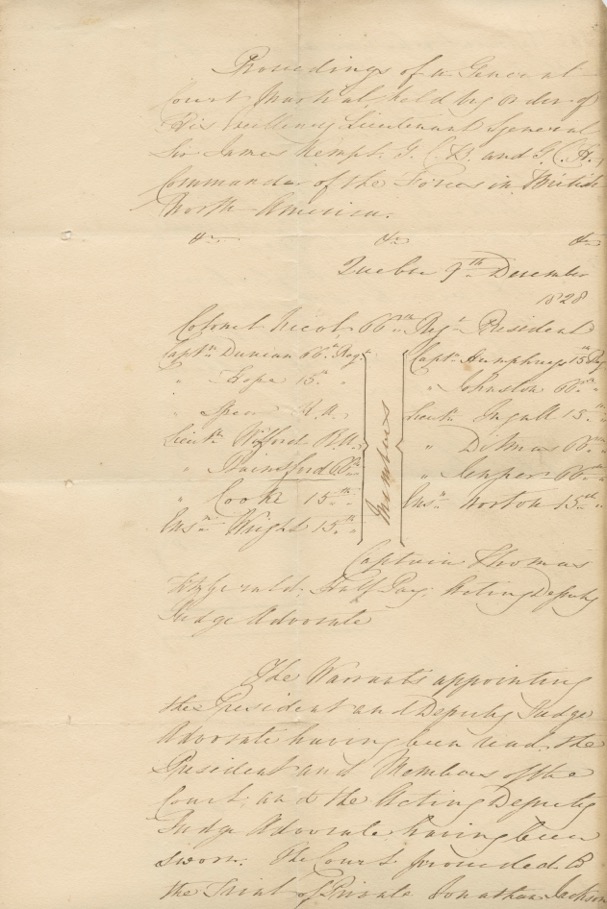 Proceedings of a General
Court Martial held by order of
His Excellency Lieutenant General
Sir James Kempt. G.C.B. and G.C.H.
Commander of the Forces in British
North America.
&c &c &c
Quebec 9th December
1828
Colonel Nicol, 66th Regt. President
Captn Duncan 66th Regt.
" Hope 15th
" R.A.
Lieutt Wilford R.A.
" Dainsford 66th
" Cooke 15th "
Ensn Wright 15th "
Members
Captn Humphreys 15th Regt
" Johnston 66th "
Lieutt Ingall 15th "
" Ditmas 66th "
" 66th "
Ensn Norton 15th "
Captain Thomas
Fitzgerald, Half Pay, Acting Deputy
Judge Advocate
The Warrants appointing
the President and Deputy Judge
Advocate having been read, the
President and Members of the
Court, and the Acting Deputy
Judge Advocate having been
sworn. The Court proceeded to
the Trial of Private Jonathan Jackson